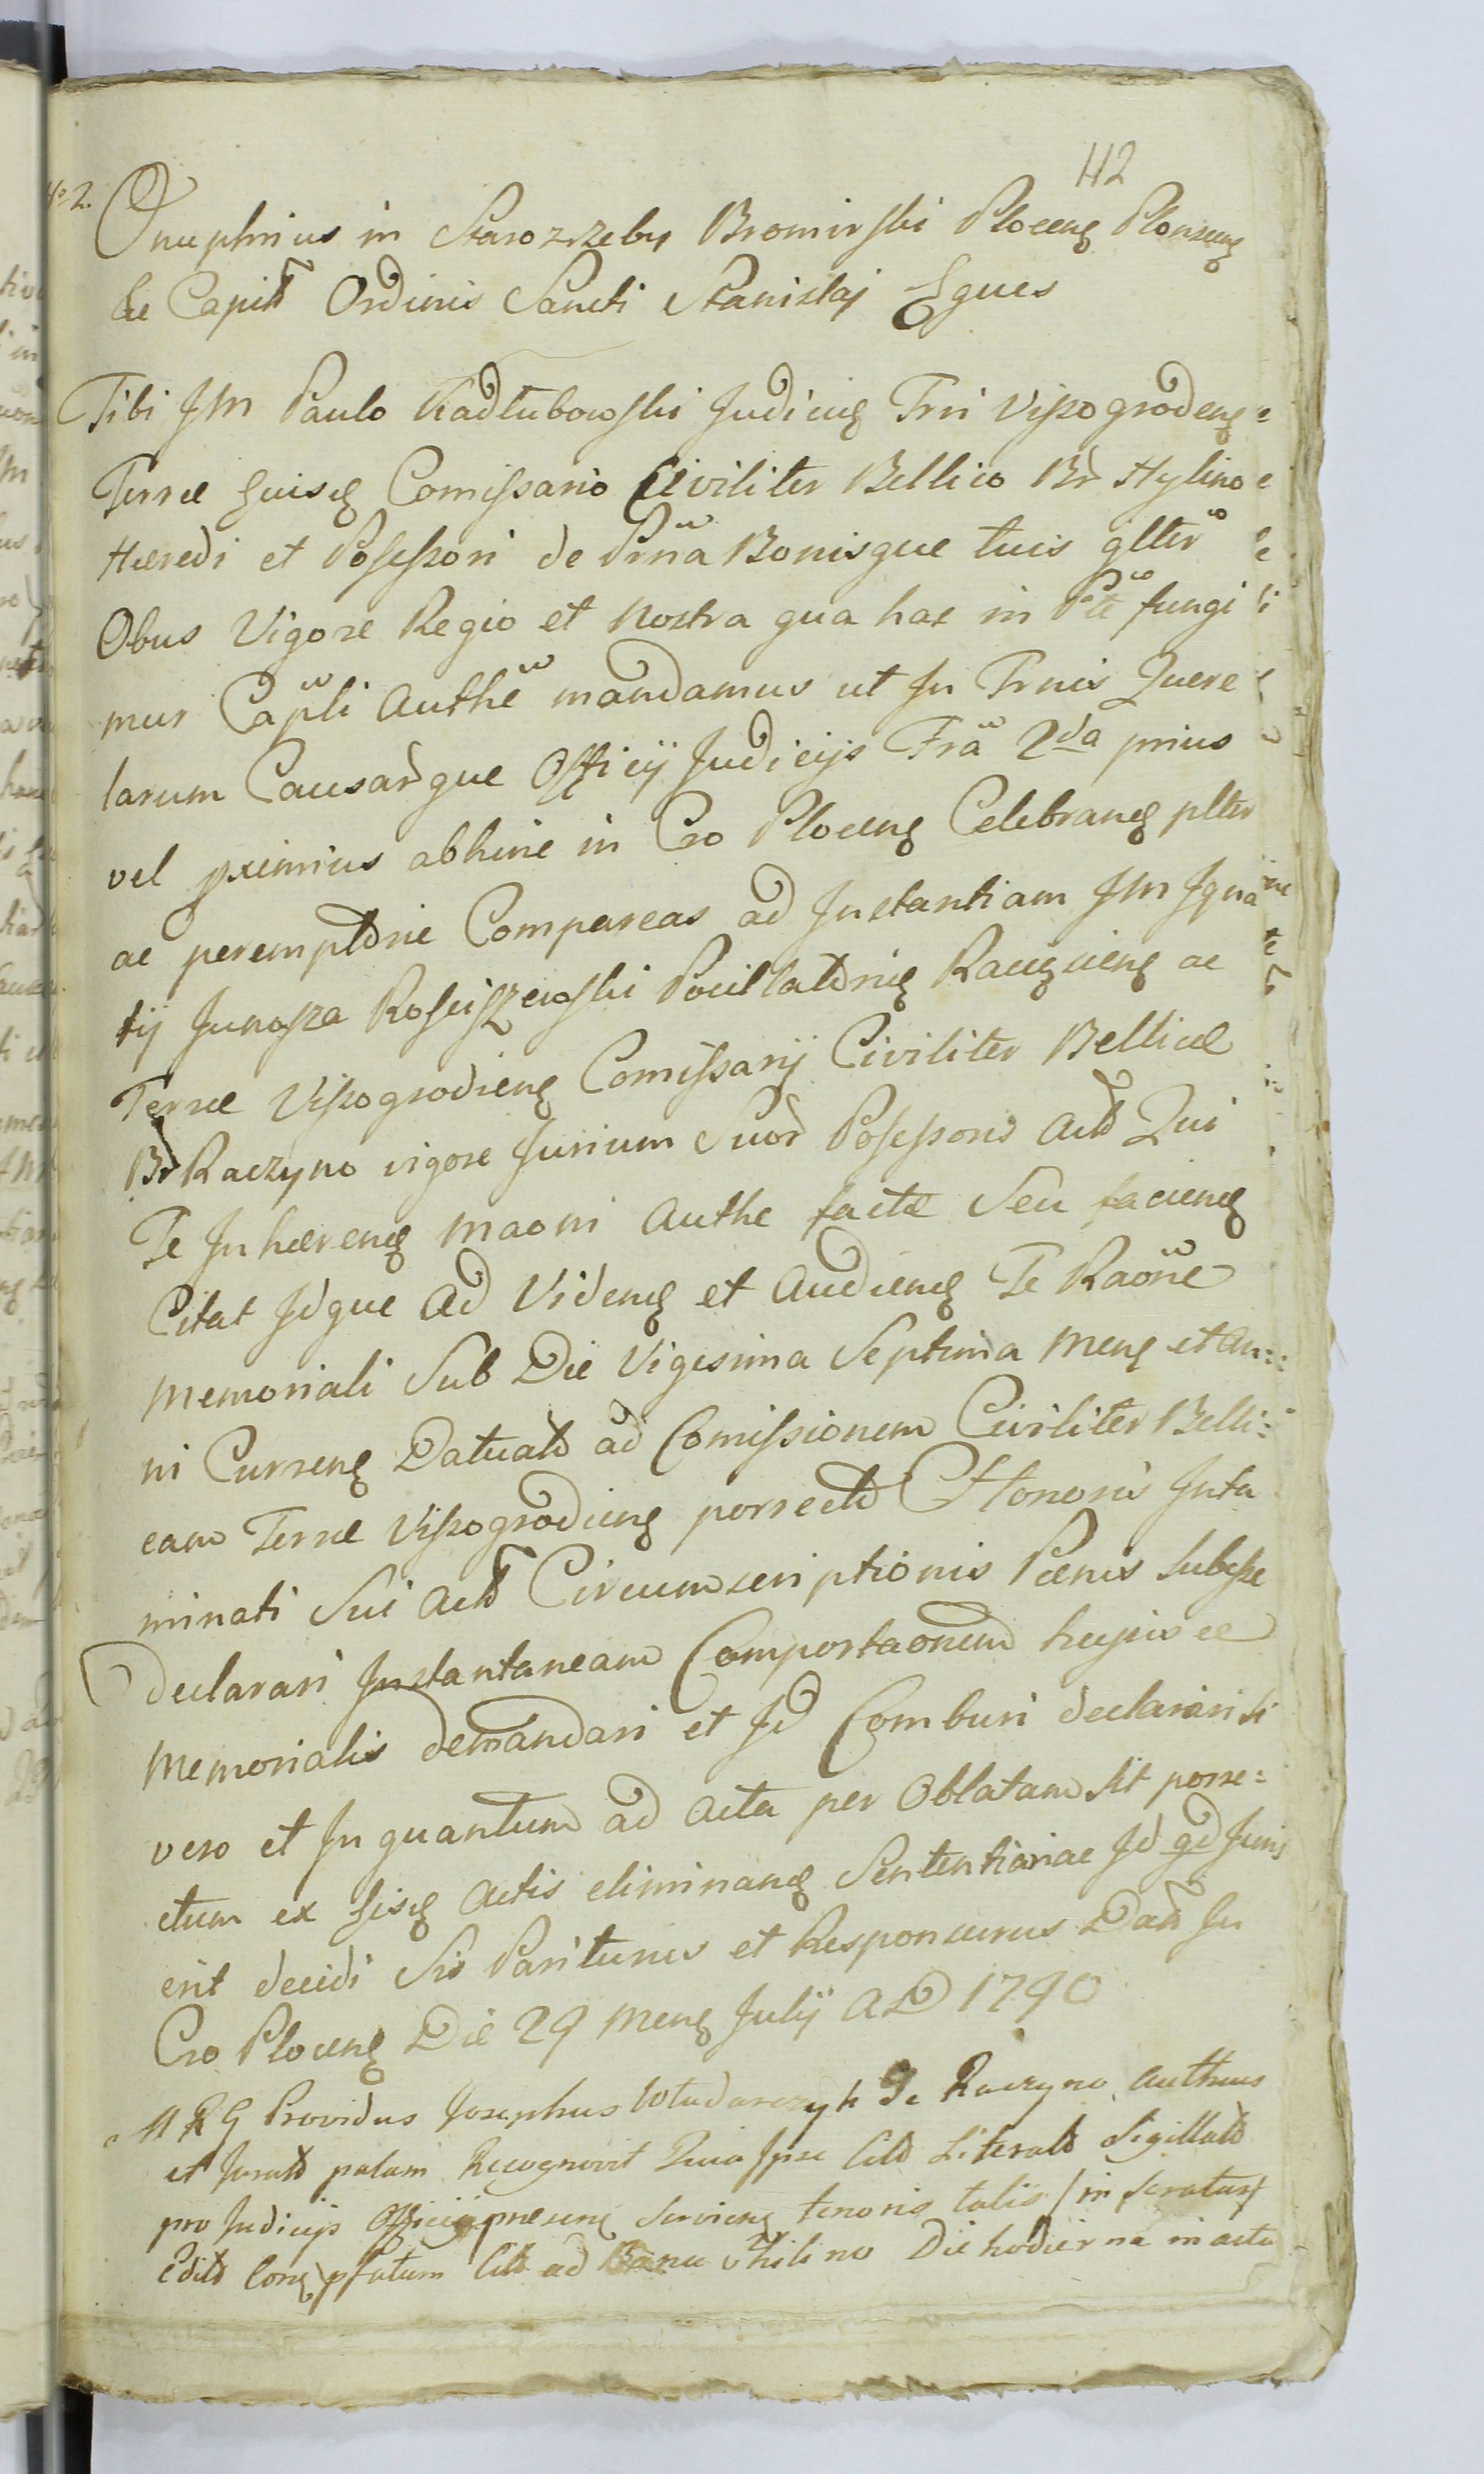 112
No 2. Onuphrius in Starozrzeby Bromirski Plocen Plonscen
&c Capitt Ordinis Sancti Stanislaj Eques
Tibi JM Paulo Kadłubowski Judici Trri Viszogroden
Terræ hujusq Comissario Civiliter Bellico Br Hylino
Hæredi et Possessori de Prña Bonisque tuis gltter
Obus Vigore Regio et Nostra qua hac in Pte fungi
mur Capli Authe mandamus ut In Trnis Quere
larum Causarque Officij Judicijs Fra 2da prius
vel pximius abhinc in Cro Plocen Celebran pltter
ac peremptorie Compareas ad Instantiam JM Igna
tij Junosza Rosciszewski Pocillatoris Raciązien ac
Terræ Viszogrodien Comissarij Civiliter Bellicæ
Br Raczyno vigore Jurium Suor Possessoris Actt Qui
Te Inhæren maoni Authe factæ Seu facien
Citat Idque Ad Viden et Audien Te Raone
Memoriali Sub Die Vigesima Septima Men et An=
ni Curren Datuatt ad Comissionem Civiliter Belli=
cam Terræ Viszogrodien porrectt Honoris Inta
minati Sui Actt Circumscriptionis Pænis Subesse
declarari Instantaneam Comportaonem hujus ce
Memorialis demandari et Id Comburi declarari si
vero et In quantum ad Acta per Oblatam sit porre=
ctum ex hisq Actis eliminan Sententiariae Id qd Juris
erit decidi Sis Pariturus et Responsurus Datt In
Cro Plocen Die 29 Men Julij AD 1790
MRG Providus Josephus Wludarczyk de Raczyno Authus
et Juratt palam Recognovit Quia Ipse Citt Literatt Sigillatt
pro Judicijs Officij præsen Servien tenoris talis (in feratur)
Editt Con pfatum Citt ad Bona Hilino Die hodierna in acta